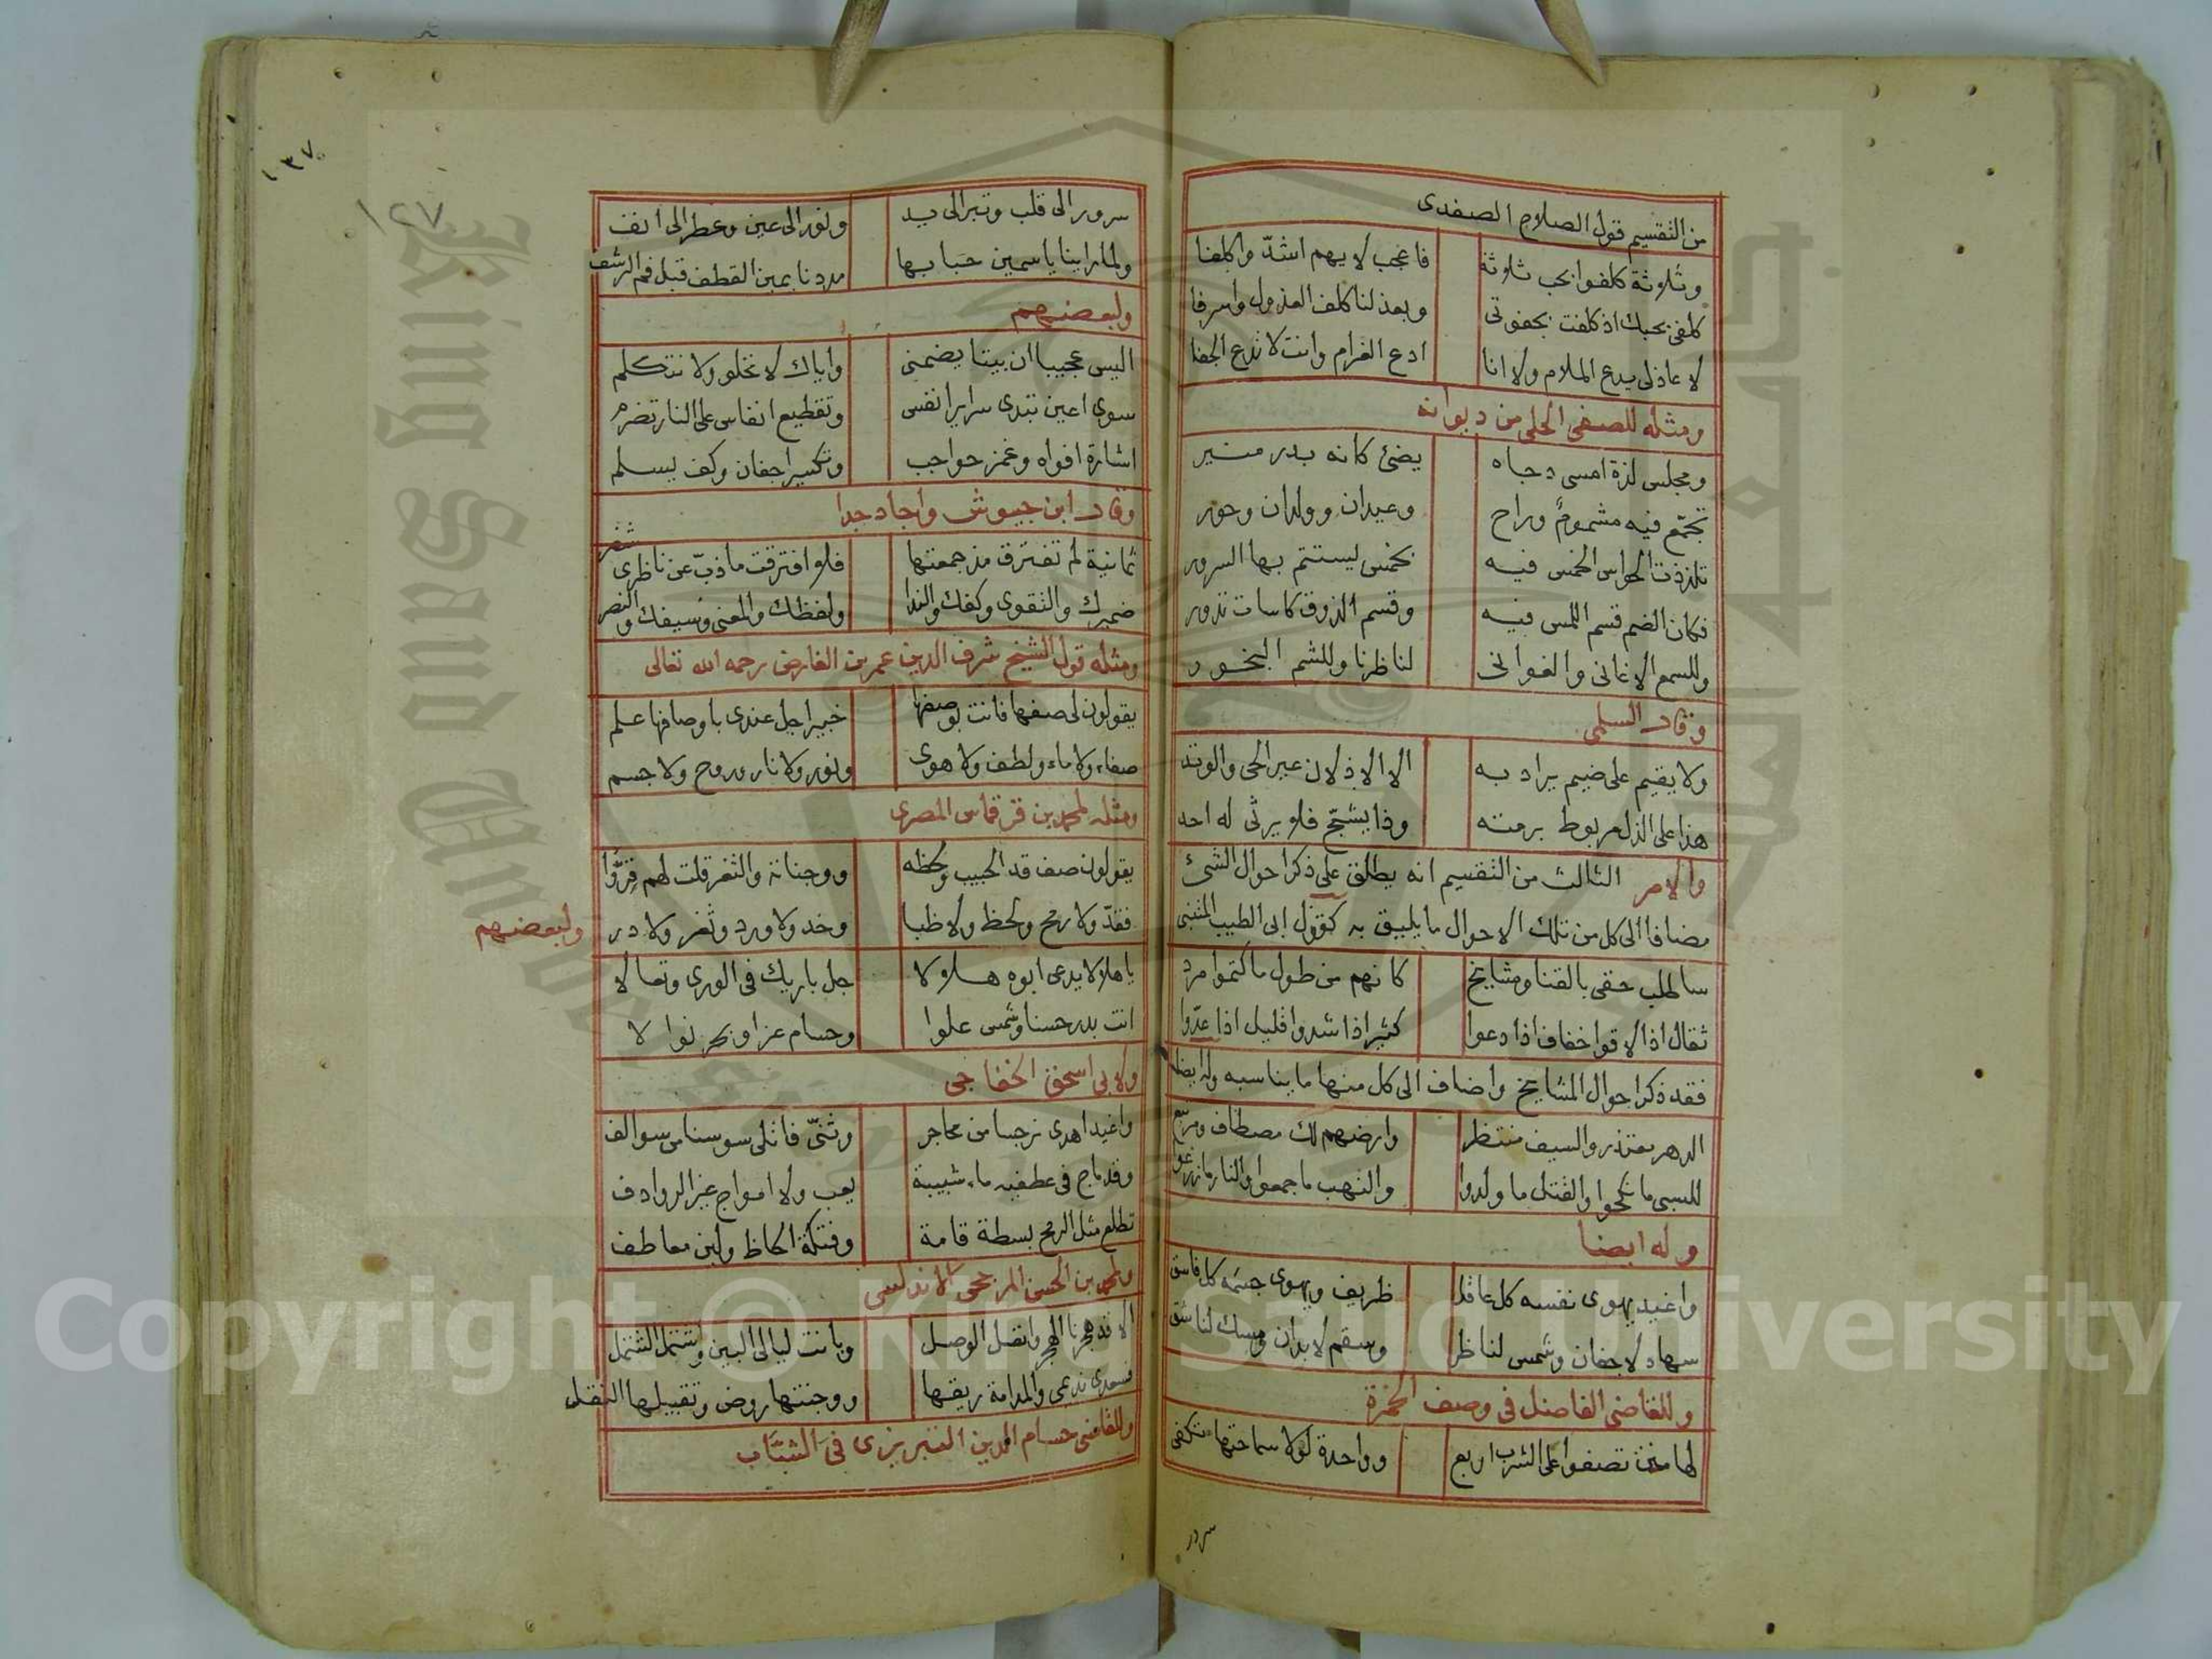 من التقسيم قول الصلاح الصفدى
وثلاثة كلفوا بحب ثلاثة فاعجب لايهم اشدّ واكلفا
كلفى بحبك اذ كلفت بجفوتى وبعذلنا كلف العذول واسرفا
لا عاذلى يدع الملام ولا انا ادع الغرام وانت لا تدع الجفا
ومثله للصفى الحلى من ديوانه
ومجلس لذة امسى دجاه يضئ كانه بدر منير
تجمّع فيه مشموم وراح وعيدان وولدان وحور
تلذذت الحواس الخمس فيه بخمس يستتم بها السرور
فكان الضم قسم اللمس فيه وقسم الذوق كاسات تدور
وللسمع الاغانى والغوانى لناظرنا وللشم البخور
وقال السلمى
ولا يقيم على ضيم يراد به الا الاذلان عير الحى والوتد
هذا على الذل مربوط برمته وذا يشجّ فلا يرثى له احد
والامر الثالث من التقسيم انه يطلق على ذكر احوال الشئ
مضافا الى كل من تلك الاحوال ما يليق به كقول ابى الطيب المتنبى
ساطلب حقى بالقنا ومشايخ كانهم من طول ما التموا مرد
ثقال اذا لاقوا خفاف اذا دعوا كثير اذا شدوا قليل اذا عدّوا
فقد ذكر احوال المشايخ واضاف الى كل منها ما يناسبه وله ايضا
الدهر معتذر والسيف منتظر وارضهم لك مصطاف ومربع
للسبى ما نكحوا والقتل ما ولدوا والنهب ما جمعوا والنار ما زرعوا
وله ايضا
واغيد يهوى نفسه كل عاقل ظريف ويهوى جسمه كل فاسق
سهاد لاجفان وشمس لناظر وسقم لابدان ومسك لناشق
وللقاضى الفاضل فى وصف الخمرة
لها منن تصفوا على الشرب اربع وواحدة لولا سماحتها تكفى
سرور
١٣٧
١٢٧
سرور الى قلب وتبر الى يد ونور الى عين وعطر الى انف
ولما راينا ياسمين حبابها مددنا يمين القطف قبل فم الرشف
ولبعضهم
اليس عجيبا ان بيتا يضمنى واياك لا نخلو ولا نتكلم
سوى اعين تبدى سراير انفس وتقطيع انفاس على النار تضرم
اشارة افواه وغمز حواجب وتكسير اجفان وكف يسلم
وقال ابن جيوش واجاد جدا
ثمانية لم تفترق مذ جمعتها فلا افترقت ما ذبّ عن ناظرى شفر
ضميرك والتقوى وكفك والندا ولفظك والمعنى وسيفك والنصر
ومثله قول الشيخ شرف الدين عمر بن الفارض رحمه الله تعالى
يقولون لى صفها فانت بوصفها خبير اجل عندى باوصافها علم
صفاء ولا ماء ولطف ولا هوى ونور ولا نار وروح ولا جسم
ومثله لمحمد بن قرقماس المصرى
يقولون صف قد الحبيب ولحظه ووجناته والثغر قلت لهم قرّوا
فقدّ ولا رمح ولحظ ولا ظبا وخد ولا ورد وثغر ولا در
ولبعضهم
يا هلالا يدعى ابوه هلالا جل باريك فى الورى وتعالا
انت بدر حسنا وشمس علوا وحسام عزا وبحر نوالا
ولابى اسحق الخفاجى
واغيد اهدى نرجسا من محاجر وثنّى فاتلى سوسنا من سوالف
وقد ماج فى عطفيه ماء شبيبة يعب ولا امواج غير الروادف
تطلع مثل الرمح بسطة قامة وفتكة الحاظ ولين معاطف
ولمحمد بن الحسن المذحجى الاندلسى
الا قد هجرنا الهجر واتصل الوصل وبانت ليالى البين واشتمل الشمل
فسعدى نديمى والمدامة ريقها ووجنتها روض وتقبيلها النقل
وللقاضى حسام الدين التبريزى فى الشبّاب
King Saud University
Copyright © King Saud University